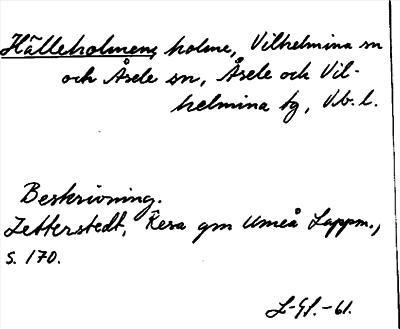 Hälleholmen, holme, Vilhelmina sn
och Åsele sn, Åsele och Vil-
helmina tg, V.b.l.
Beskrivning.
Zetterstedt, Resa gm Umeå Lappm.,
s. 170.